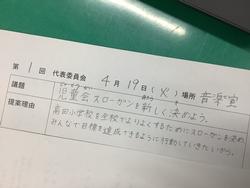 第 1 回 代表委員会 4月 19日(火) 場所 音楽室
議題 児童会スローガンを新しく決めよう。
提案理由 南田小学校を全校でよりよくするためにスローガンを決め
みんなで目標を達成できるように行動していきたいから。